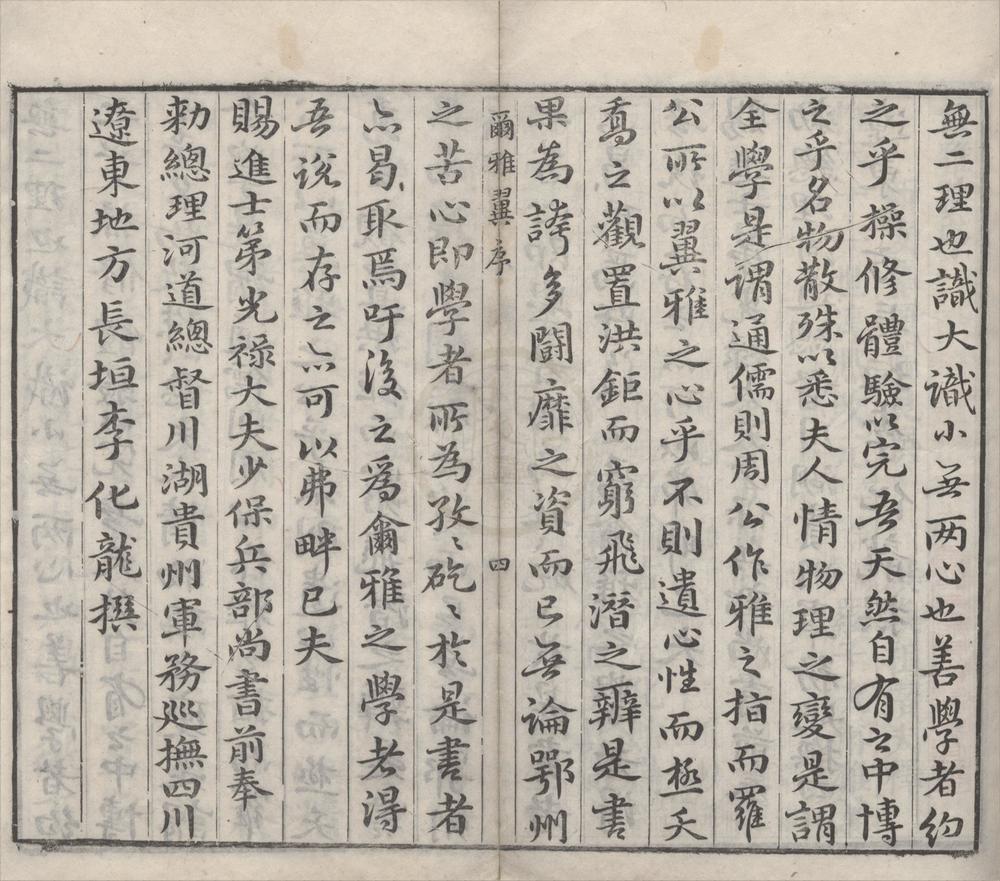 無二理也識大識小無兩心也善學者約
之乎操修體驗以完吾天然自有之中博
之乎名物散殊以悉夫人情物理之變是謂
全學是謂通儒則周公作雅之指而羅
公所以翼雅之心乎不則遺心性而極夭
喬之觀置洪鉅而窮飛潛之辯是書
果為誇多鬭靡之資而已無論鄂州
爾雅翼序
四
之苦心即學者所為孜〻矻〻於是書者
亦曷取焉吁後之為爾雅之學者得
吾說而存之亦可以弗畔已夫
賜進士第光祿大夫少保兵部尚書前奉
勑總理河道總督川湖貴州軍務廵撫四川
遼東地方長垣李化龍撰